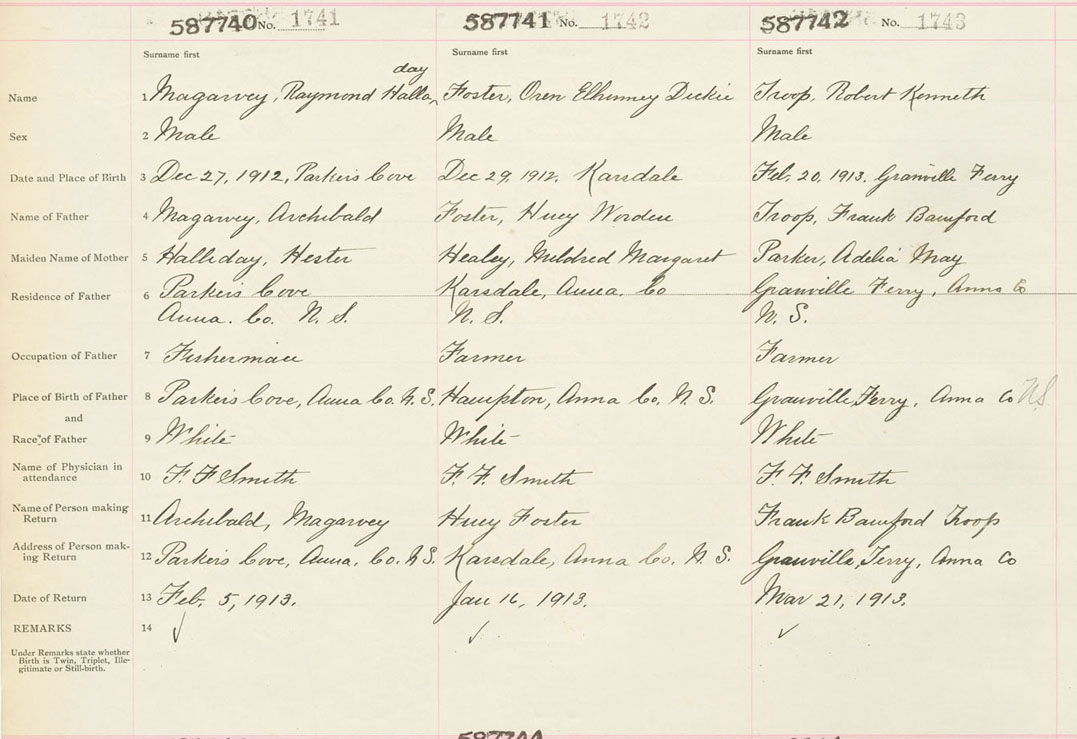 587740 No. 1741 587741 No. 1742 587742 No. 1743
Surname first Surname first Surname first
day
Name 1 Magarvey, Raymond Halla, Foster, Oren Elhinney Dickie Troop, Robert Kenneth
Sex 2 Male Male Male
Date and Place of Birth 3 Dec 27, 1912, Parker's Cove Dec 29, 1912. Karsdale Feb. 20, 1913. Granville Ferry
Name of Father 4 Magarvey, Archibald Foster, Huey Worden Troop, Frank Bamford
Maiden Name of Mother 5 Halliday, Hester Healey, Mildred Margaret Parker, Adelia May
Residence of Father 6 Parker's Cove Karsdale, Anna. Co Granville Ferry, Anna Co
Anna. Co. N. S. N. S. N. S.
Occupation of Father 7 Fisherman Farmer Farmer
Place of Birth of Father 8 Parker's Cove, Anna Co. N. S. Hampton, Anna Co. N. S. Granville, Ferry, Anna Co NS
and
Race of Father 9 White White White
Name of Physician in
attendance 10 F. F Smith F. F. Smith F. F. Smith
Name of Person making
Return 11 Archibald, Magarvey Huey Foster Frank Bamford Troop
Address of Person mak-
ing Return 12 Parker's Cove, Anna. Co. N S. Karsdale, Anna Co. N. S. Granville, Ferry, Anna Co
Date of Return 13 Feb. 5, 1913. Jan 16, 1913. Mar 21, 1913.
REMARKS 14 ✓ ✓ ✓
Under Remarks state whether
Birth is Twin, Triplet, Ille-
gitimate or Still-birth.